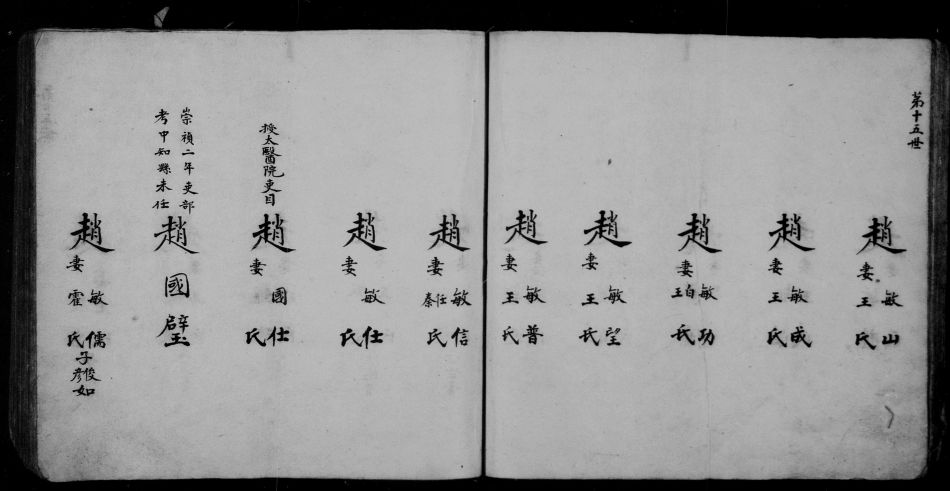 第十五世
趙敏山
妻王氏
趙敏成
妻王氏
趙敏功
妻白王氏
趙敏望
妻王氏
趙敏普
妻王氏
趙敏信
妻任秦氏
趙敏仕
妻氏
授太醫院吏目
趙國仕
妻氏
崇禎二年吏部
考中知縣未任
趙國璧
趙敏儒
妻霍氏
子俊彥如